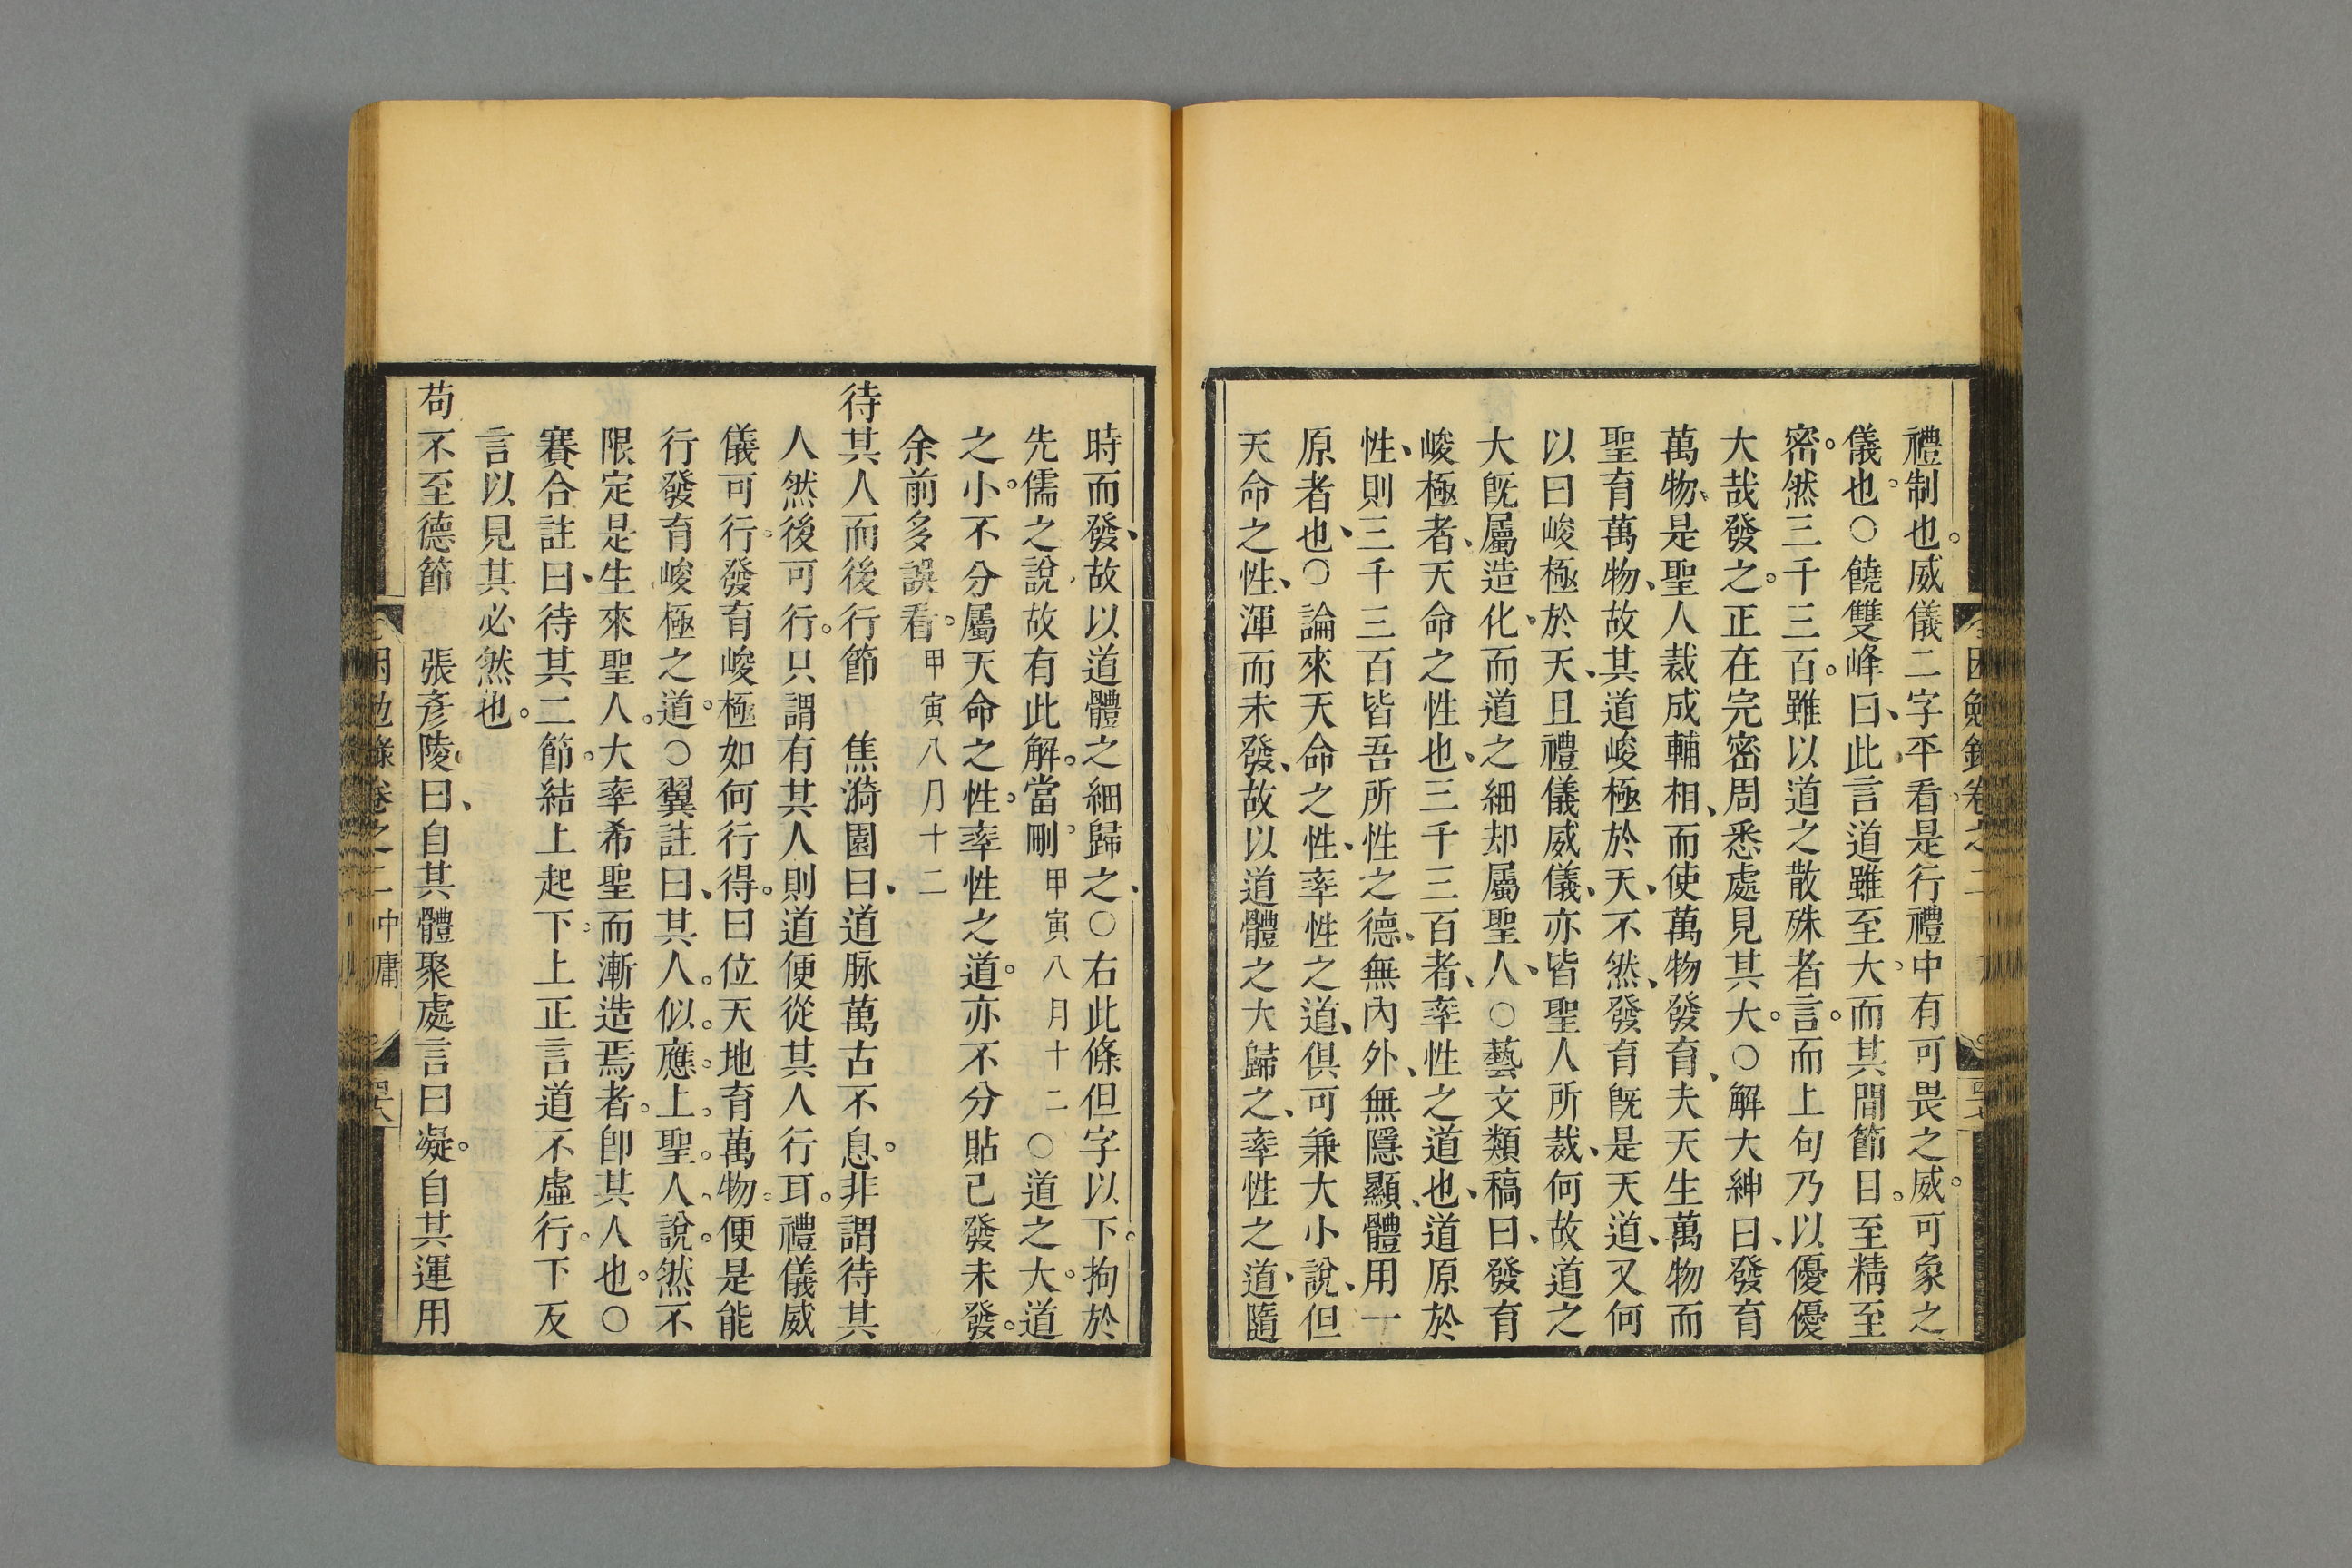 禮制也。威儀二字平看是行禮中有可畏之威。可象之
儀也。○饒雙峰曰、此言道雖至大、而其間節目。至精至
密。然三千三百。雖以道之散殊者言。而上句乃以優優
大哉發之。正在完密周悉處見其大。○解大紳曰、發育
萬物、是聖人裁成輔相、而使萬物發育、夫天生萬物而
聖育萬物、故其道峻極於天、不然、發育旣是天道、又何
以曰峻極於天、且禮儀威儀、亦皆聖人所裁、何故道之
大旣屬造化、而道之細却屬聖人、○藝文類稿曰、發育
峻極者、天命之性也、三千三百者、率性之道也、道原於
性、則三千三百皆吾所性之德、無內外、無隱顯、體用一
原者也、○論來天命之性、率性之道、俱可兼大小說、但
天命之性、渾而未發、故以道體之大歸之、率性之道、隨
時而發、故以道體之細歸之、○右此條但字以下。拘於
先儒之說、故有此解。當刪 甲寅八月十二 ○道之大。道
之小。不分屬天命之性。率性之道。亦不分貼已發未發。
余前多誤看。甲寅八月十二
待其人而後行節 焦漪園曰、道脉萬古不息。非謂待其
人然後可行。只謂有其人則道便從其人行耳。禮儀威
儀可行。發育峻極如何行得。曰位天地育萬物。便是能
行發育峻極之道。○翼註曰、其人。似應上聖人說。然不
限定是生來聖人。大率希聖而漸造焉者。卽其人也。○
賽合註曰、待其二節。結上起下。上正言道不虛行。下反
言以見其必然也。
苟不至德節 張彥陵曰、自其體聚處言曰凝。自其運用
困勉錄卷之二 中庸